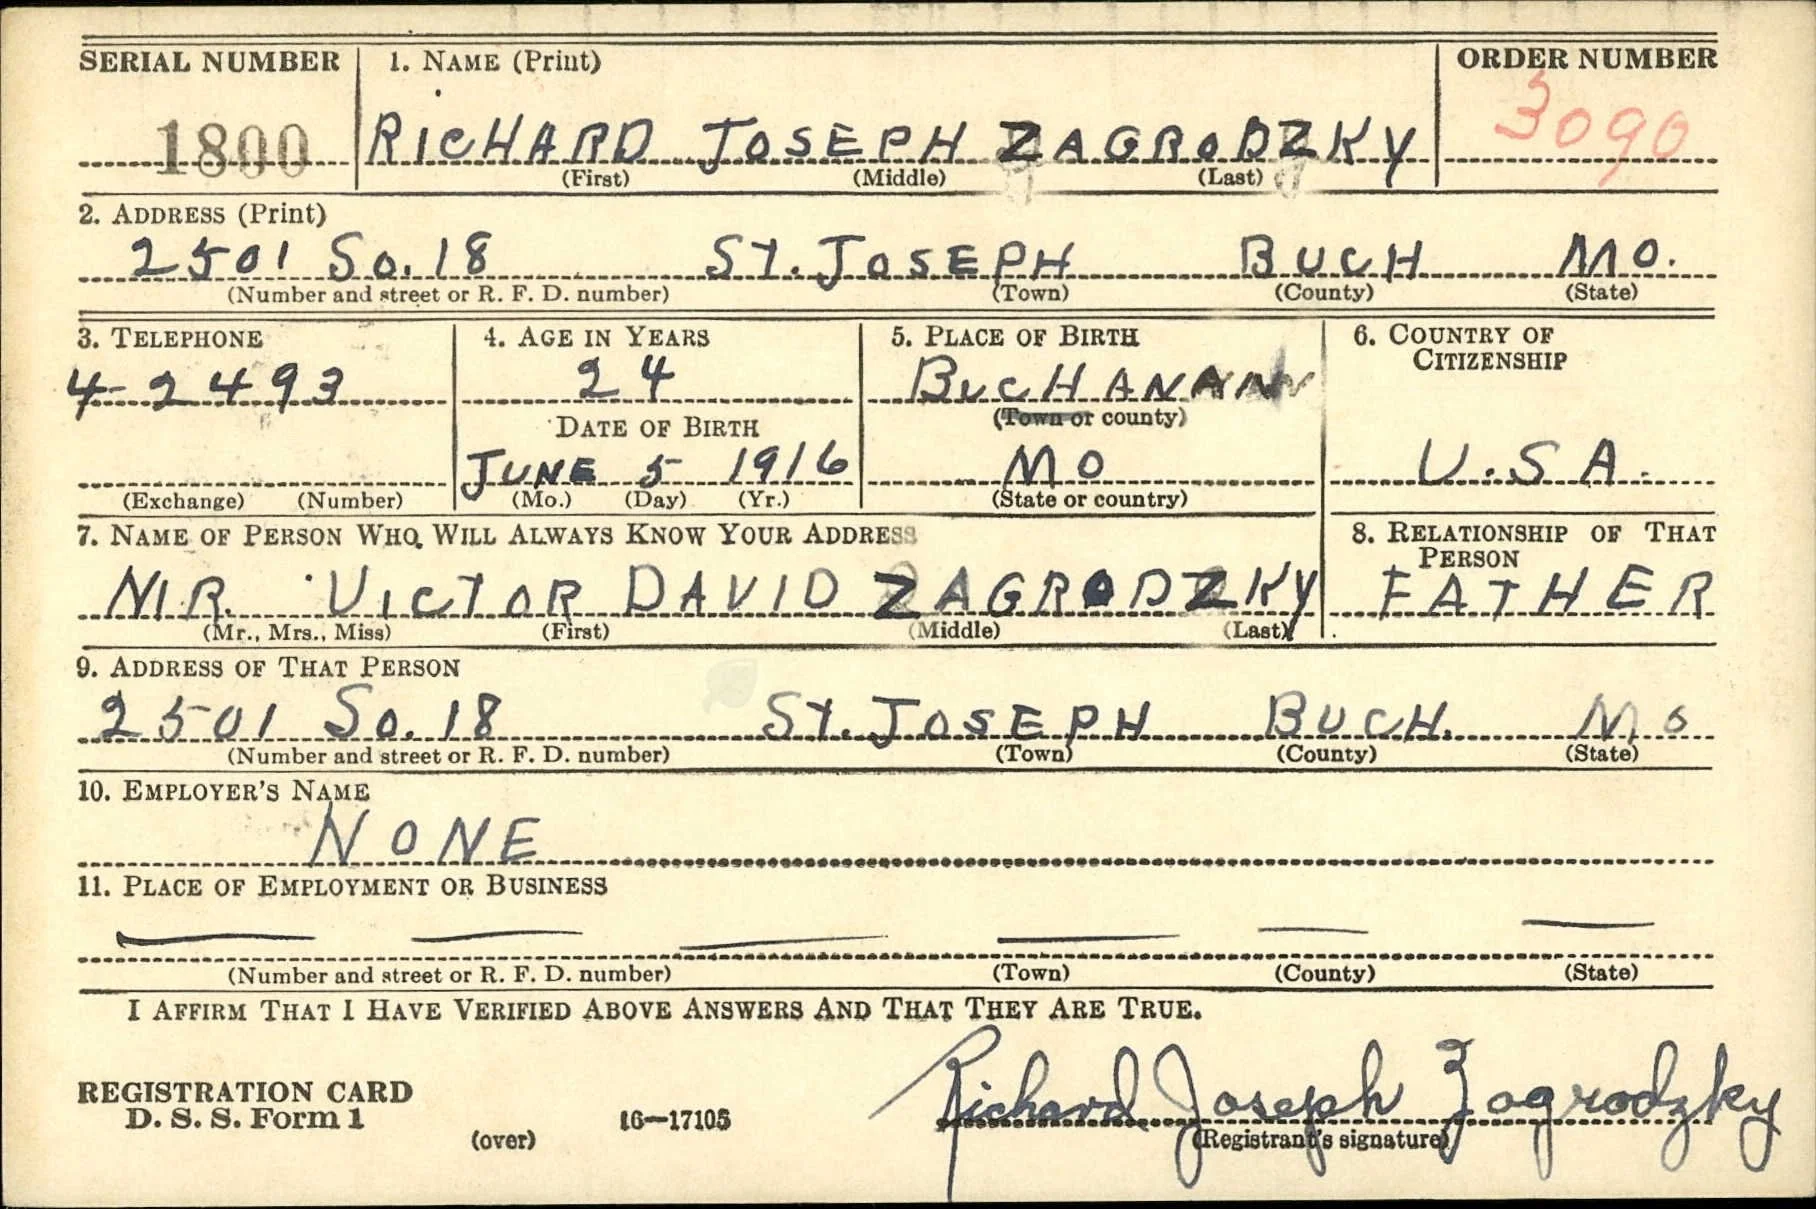 SERIAL NUMBER 1. NAME (Print) ORDER NUMBER
1800 RICHARD JOSEPH ZAGRODZKY 3090
(First) (Middle) (Last)
2. ADDRESS (Print)
2501 So. 18 ST. JOSEPH BUCH MO.
(Number and street or R. F. D. number) (Town) (County) (State)
3. TELEPHONE 4. AGE IN YEARS 5. PLACE OF BIRTH 6. COUNTRY OF CITIZENSHIP
4-2493 24 BUCHANAN
DATE OF BIRTH (Town or county)
JUNE 5 1916 MO U.S.A.
(Exchange) (Number) (Mo.) (Day) (Yr.) (State or country)
7. NAME OF PERSON WHO WILL ALWAYS KNOW YOUR ADDRESS 8. RELATIONSHIP OF THAT PERSON
MR. VICTOR DAVID ZAGRODZKY FATHER
(Mr., Mrs., Miss) (First) (Middle) (Last)
9. ADDRESS OF THAT PERSON
2501 So. 18 ST. JOSEPH BUCH. Mo
(Number and street or R. F. D. number) (Town) (County) (State)
10. EMPLOYER'S NAME
NONE
11. PLACE OF EMPLOYMENT OR BUSINESS
— — — — — —
(Number and street or R. F. D. number) (Town) (County) (State)
I AFFIRM THAT I HAVE VERIFIED ABOVE ANSWERS AND THAT THEY ARE TRUE.
REGISTRATION CARD Richard Joseph Zagrodzky
D. S. S. Form 1 (over) 16—17105 (Registrant's signature)